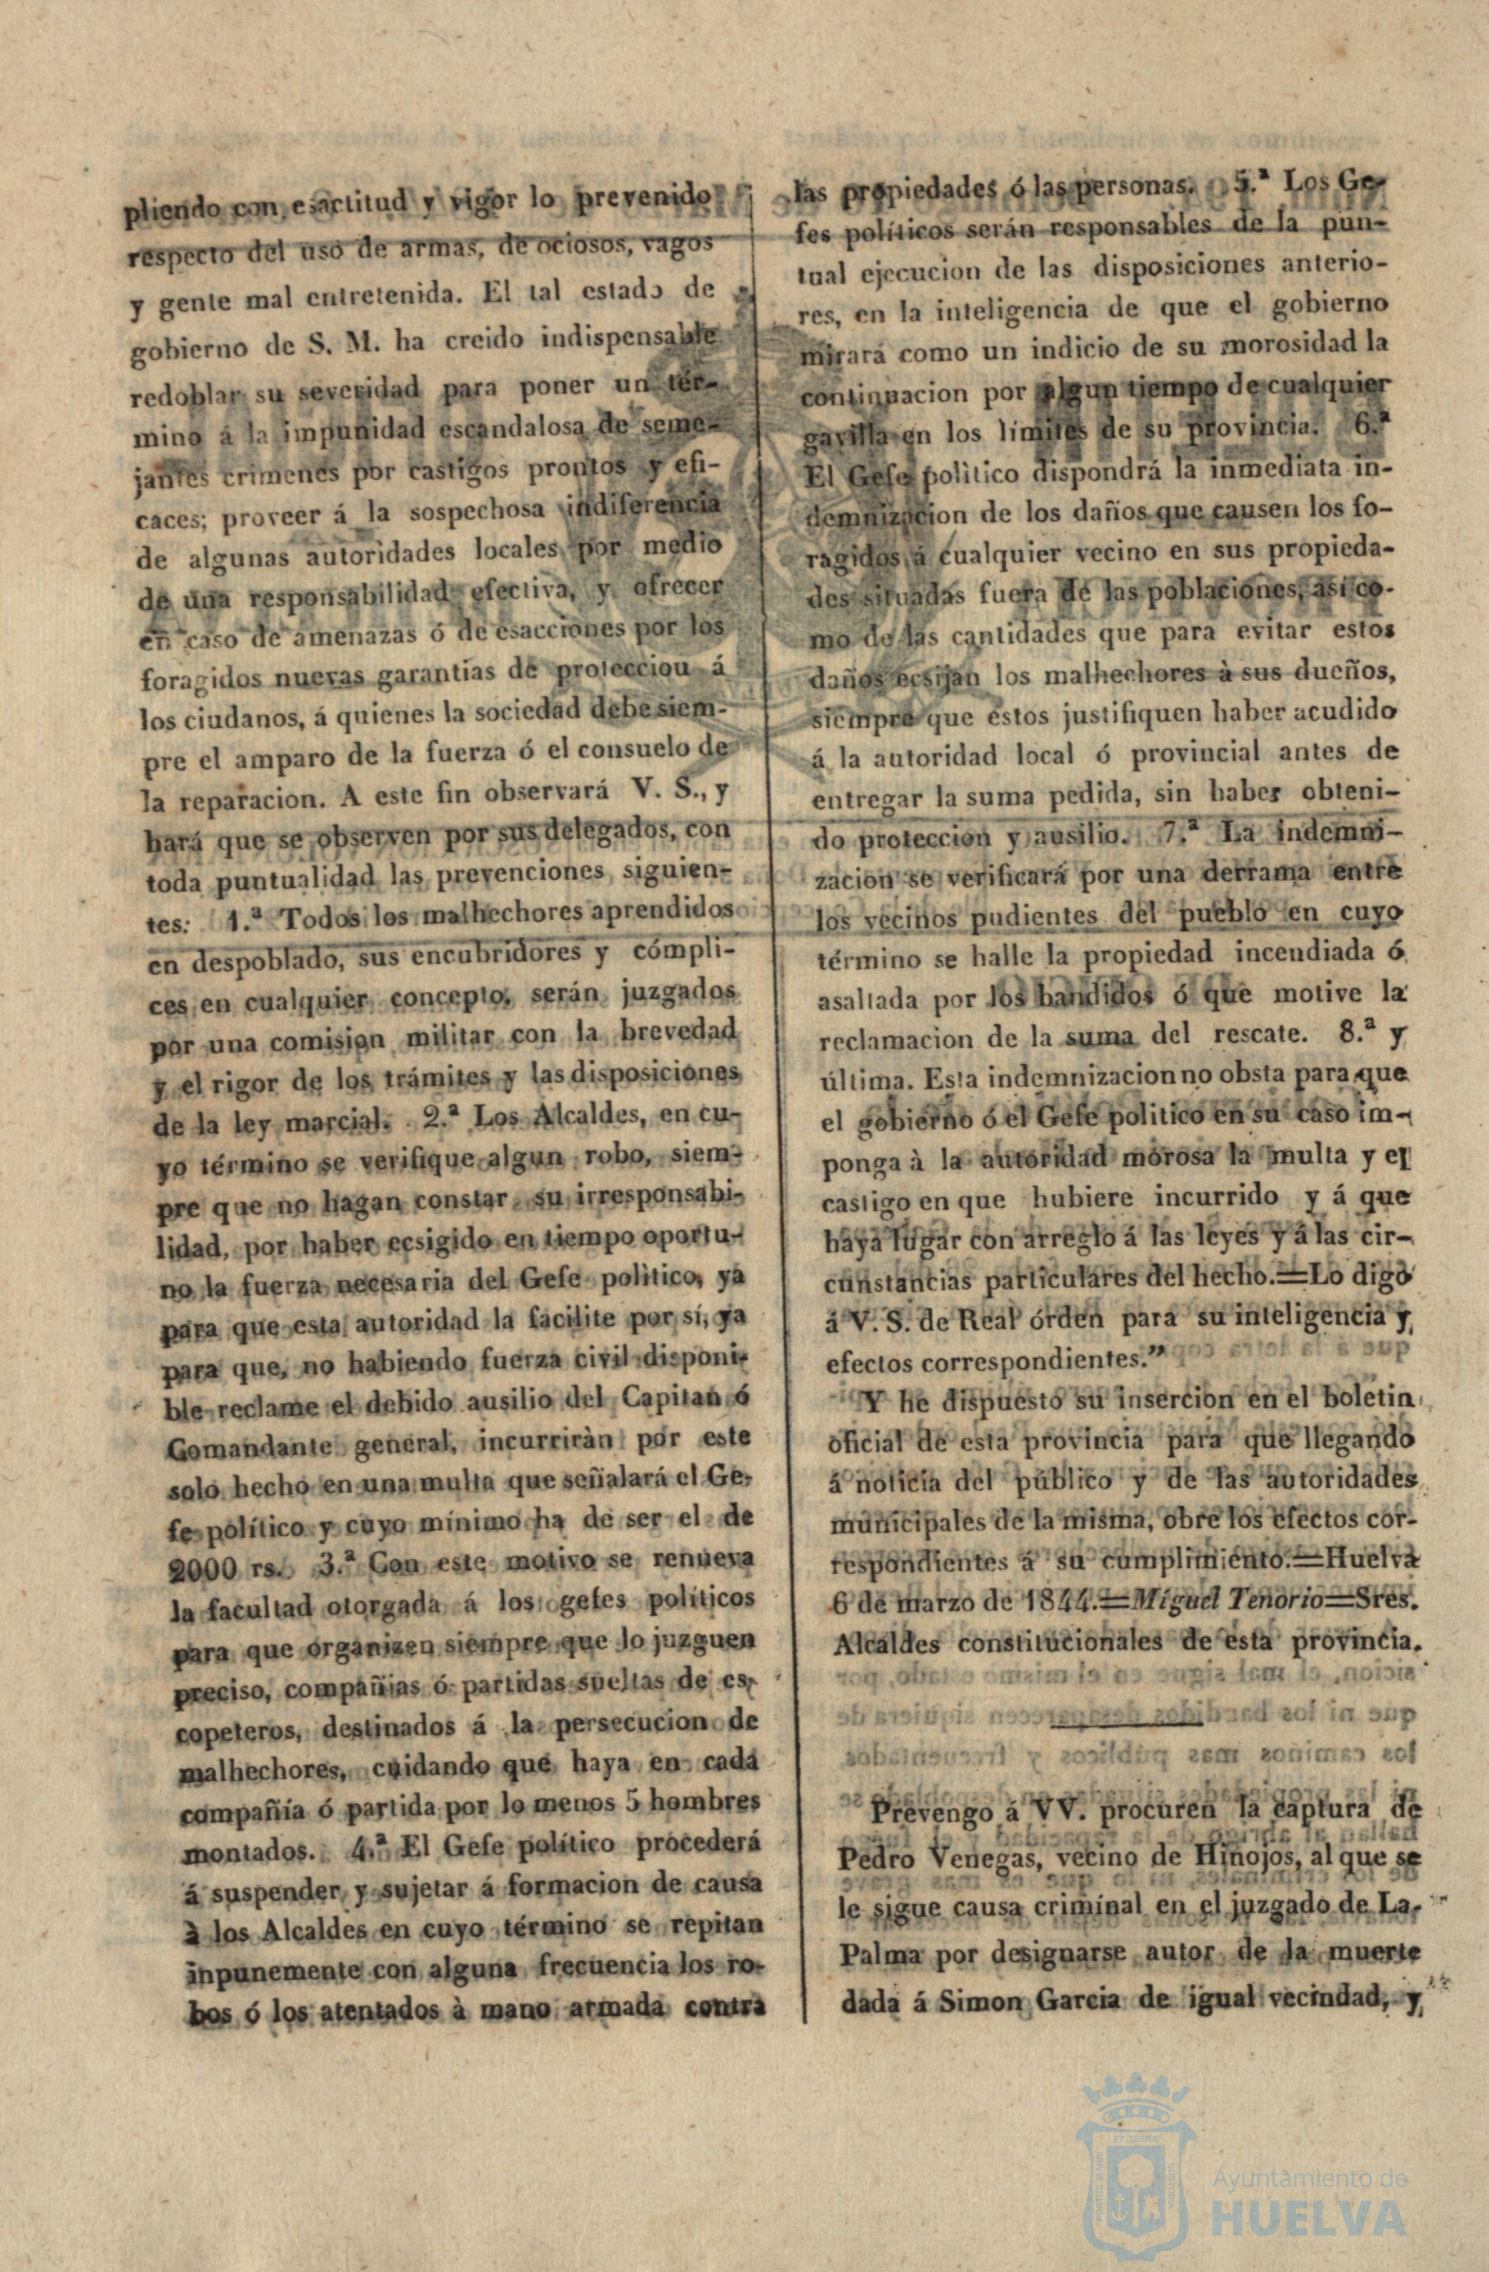 pliendo con esactitud y vigor lo prevenido
respecto del uso de armas, de ociosos, vagos
y gente mal entretenida. El tal estado de
gobierno de S. M. ha creido indispensable
redoblar su severidad para poner un tér-
mino á la impunidad escandalosa de seme-
jantes crimenes por castigos prontos y efi-
caces; proveer á la sospechosa indiferencia
de algunas autoridades locales por medio
de una responsabilidad efectiva, y ofrecer
en caso de amenazas ó de esacciones por los
foragidos nuevas garantias de protecciou á
los ciudanos, á quienes la sociedad debe siem-
pre el amparo de la fuerza ó el consuelo de
la reparacion. A este fin observará V. S., y
hará que se observen por sus delegados, con
toda puntualidad las prevenciones siguien-
tes: 1.ª Todos los malhechores aprendidos
en despoblado, sus encubridores y cómpli-
ces en cualquier concepto, serán juzgados
por una comision militar con la brevedad
y el rigor de los trámites y las disposiciones
de la ley marcial. 2.ª Los Alcaldes, en cu-
yo término se verifique algun robo, siem-
pre que no hagan constar su irresponsabi-
lidad, por haber ecsigido en tiempo oportu-
no la fuerza necesaria del Gefe politico, ya
para que esta autoridad la facilite por sí, ya
para que, no habiendo fuerza civil disponi-
ble reclame el debido ausilio del Capitan ó
Comandante general, incurriràn por este
solo hecho en una multa que señalará el Ge-
fe político y cuyo mínimo ha de ser el de
2000 rs. 3.ª Con este motivo se renueva
la facultad otorgada á los gefes políticos
para que organizen siempre que lo juzguen
preciso, compañias ó partidas sueltas de es-
copeteros, destinados á la persecucion de
malhechores, cuidando que haya en cada
compañía ó partida por lo menos 5 hombres
montados. 4.ª El Gefe político procederá
á suspender y sujetar á formacion de causa
à los Alcaldes en cuyo término se repitan
inpunemente con alguna frecuencia los ro-
bos ó los atentados à mano armada contra
las propiedades ó las personas. 5.ª Los Ge-
fes políticos serán responsables de la pun-
tual ejecucion de las disposiciones anterio-
res, en la inteligencia de que el gobierno
mirará como un indicio de su morosidad la
continuacion por algun tiempo de cualquier
gavilla en los límites de su provincia. 6.ª
El Gefe polìtico dispondrá la inmediata in-
demnizacion de los daños que causen los fo-
ragidos á cualquier vecino en sus propieda-
des situadas fuera de las poblaciones, asi co-
mo de las cantidades que para evitar estos
daños ecsijan los malhechores à sus dueños,
siempre que estos justifiquen haber acudido
á la autoridad local ó provincial antes de
entregar la suma pedida, sin haber obteni-
do proteccion y ausilio. 7.ª La indemni-
zacion se verificará por una derrama entre
los vecinos pudientes del pueblo en cuyo
término se halle la propiedad incendiada ó
asaltada por los bandidos ó que motive la
reclamacion de la suma del rescate. 8.ª y
última. Esta indemnizacion no obsta para que
el gobierno ó el Gefe politico en su caso im-
ponga à la autoridad morosa la multa y el
castigo en que hubiere incurrido y á que
haya lugar con arreglo á las leyes y á las cir-
cunstancias particulares del hecho.=Lo digo
á V. S. de Real órden para su inteligencia y
efectos correspondientes.”
Y he dispuesto su insercion en el boletin
oficial de esta provincia para que llegando
á noticia del público y de las autoridades
municipales de la misma, obre los efectos cor-
respondientes á su cumplimiento.=Huelva
6 de marzo de 1844.=Miguel Tenorio=Sres.
Alcaldes constitucionales de esta provincia.
Prevengo á VV. procuren la captura de
Pedro Venegas, vecino de Hinojos, al que se
le sigue causa criminal en el juzgado de La
Palma por designarse autor de la muerte
dada á Simon Garcia de igual vecindad, y
Ayuntamiento de
HUELVA